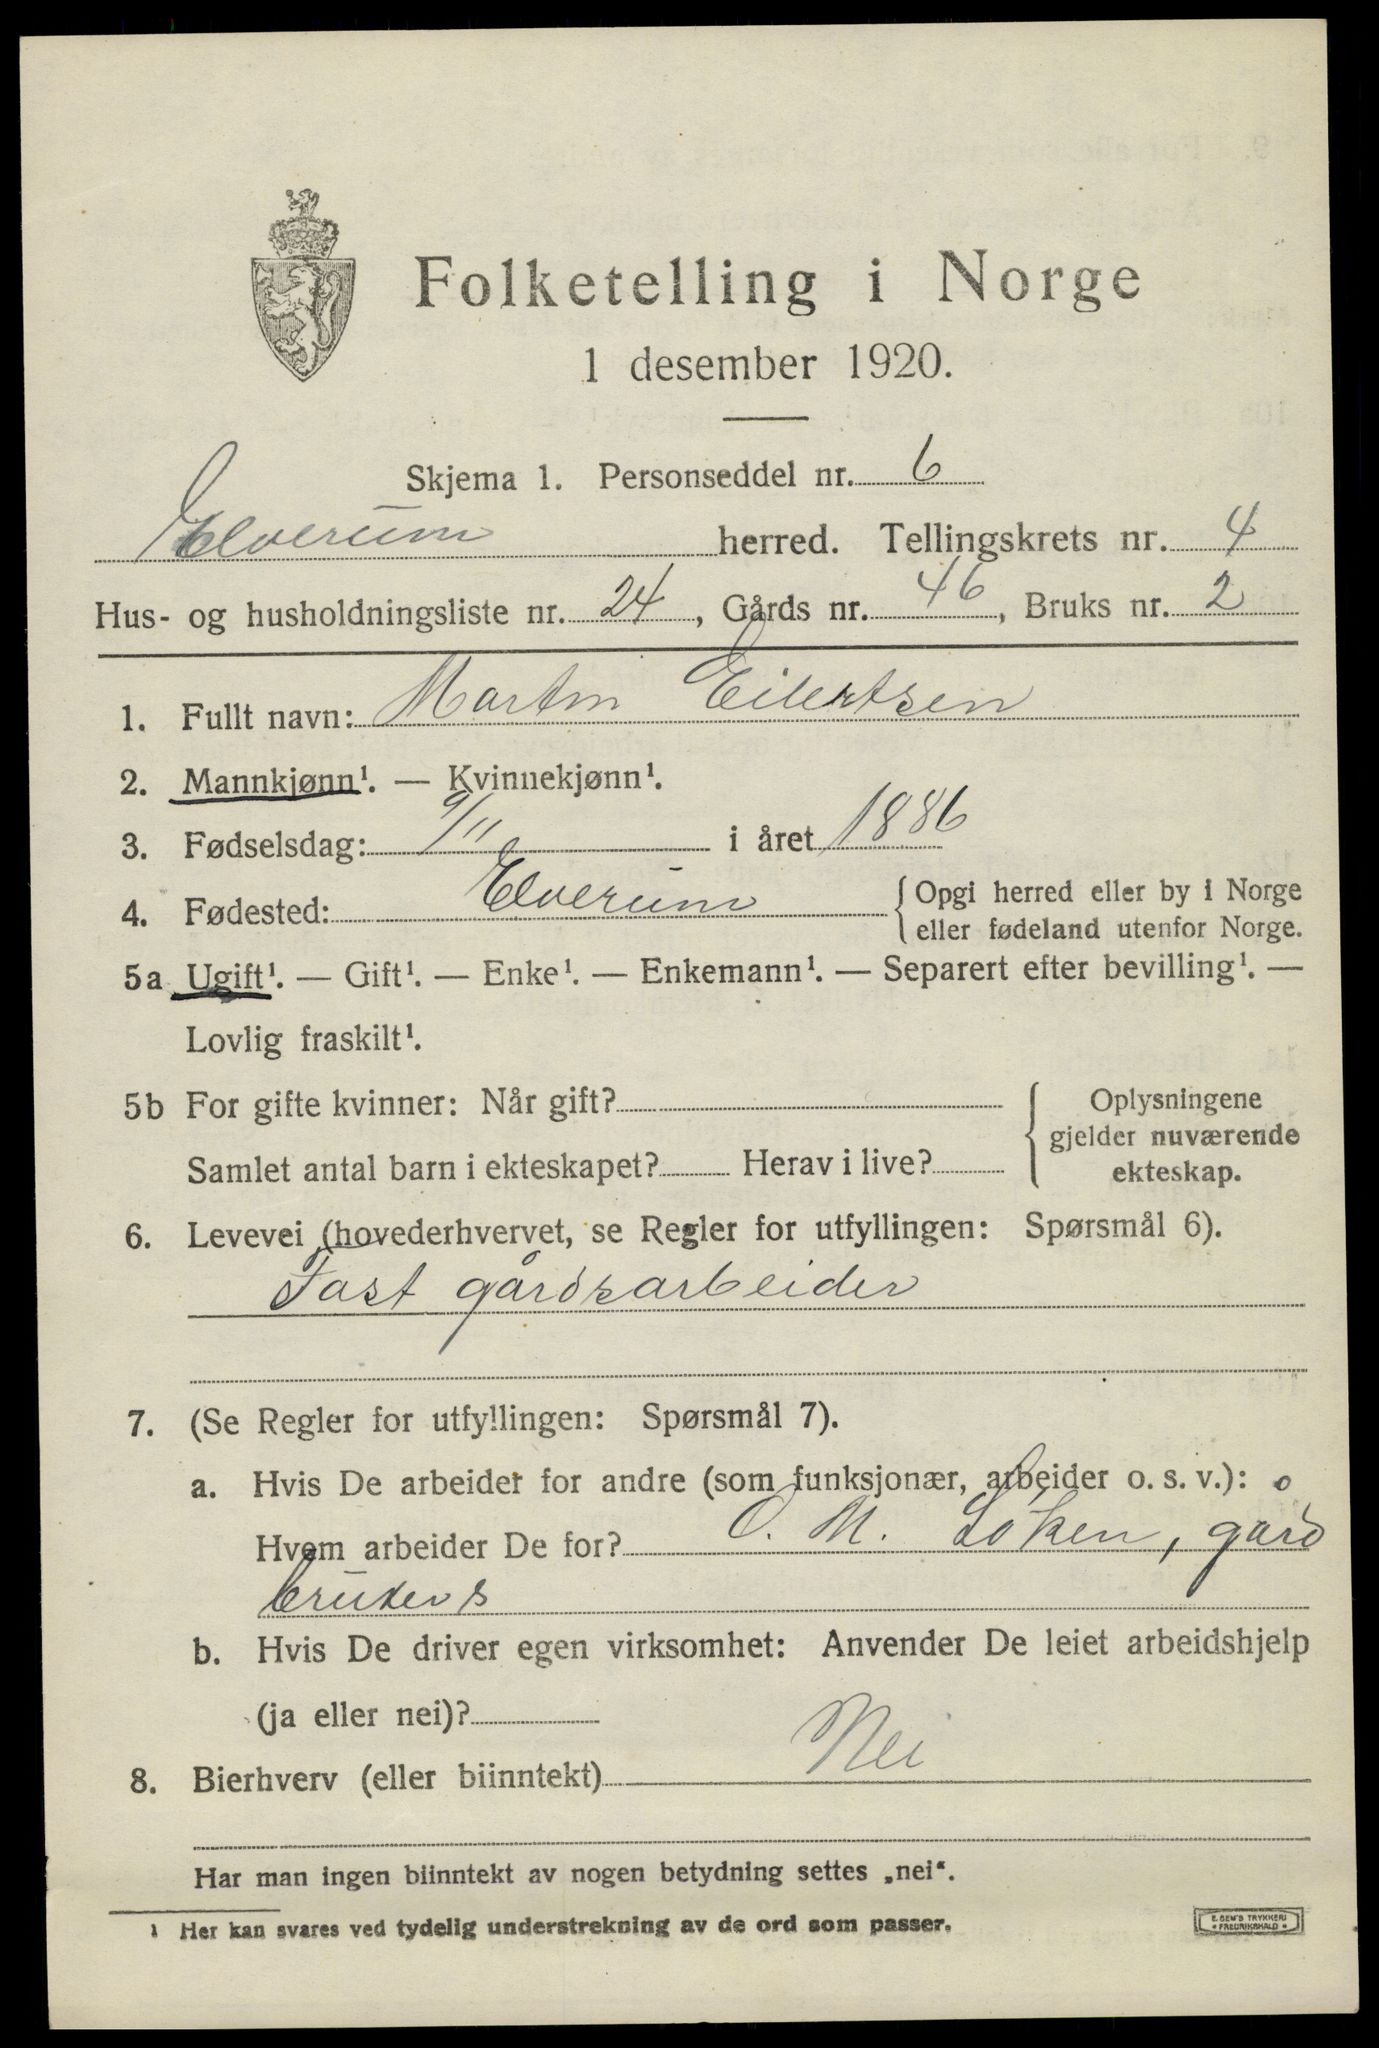 Folketelling i Norge
1 desember 1920.
Skjema 1. Personseddel nr. 6
Elverum herred. Tellingskrets nr. 4
Hus- og husholdningsliste nr. 24, Gårds nr. 46, Bruks nr. 2
1. Fullt navn: Martin Eilertsen
2. Mannkjønn¹. — Kvinnekjønn¹.
3. Fødselsdag: 9/11 i året 1886
4. Fødested: Elverum { Opgi herred eller by i Norge
eller fødeland utenfor Norge.
5a Ugift¹. — Gift¹. — Enke¹. — Enkemann¹. — Separert efter bevilling¹. —
Lovlig fraskilt¹.
5b For gifte kvinner: Når gift? { Oplysningene
gjelder nuværende
Samlet antal barn i ekteskapet? Herav i live? ekteskap.
6. Levevei (hovederhvervet, se Regler for utfyllingen: Spørsmål 6).
Fast gårdsarbeider
7. (Se Regler for utfyllingen: Spørsmål 7).
a. Hvis De arbeider for andre (som funksjonær, arbeider o. s. v.):
Hvem arbeider De for? O. M. Løken, gård
brukers
b. Hvis De driver egen virksomhet: Anvender De leiet arbeidshjelp
(ja eller nei)?
8. Bierhverv (eller biinntekt) Nei
Har man ingen biinntekt av nogen betydning settes „nei“.
¹ Her kan svares ved tydelig understrekning av de ord som passer.
E. SEM'S TRYKKERI
• FREDRIKSHALD •